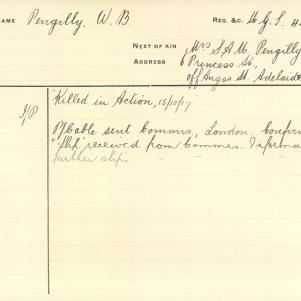 NAME Pengilly, W. B. REG. &c. M.G.S. 4
NEXT OF KIN Mrs S. A. M. Pengilly
ADDRESS 6 Princess St,
off Angas St. Adelaide
Killed in Action, 15/10/17
P/Cable sent Commrs, London, Confir
"slip" received from Commrs. Informa
further slip